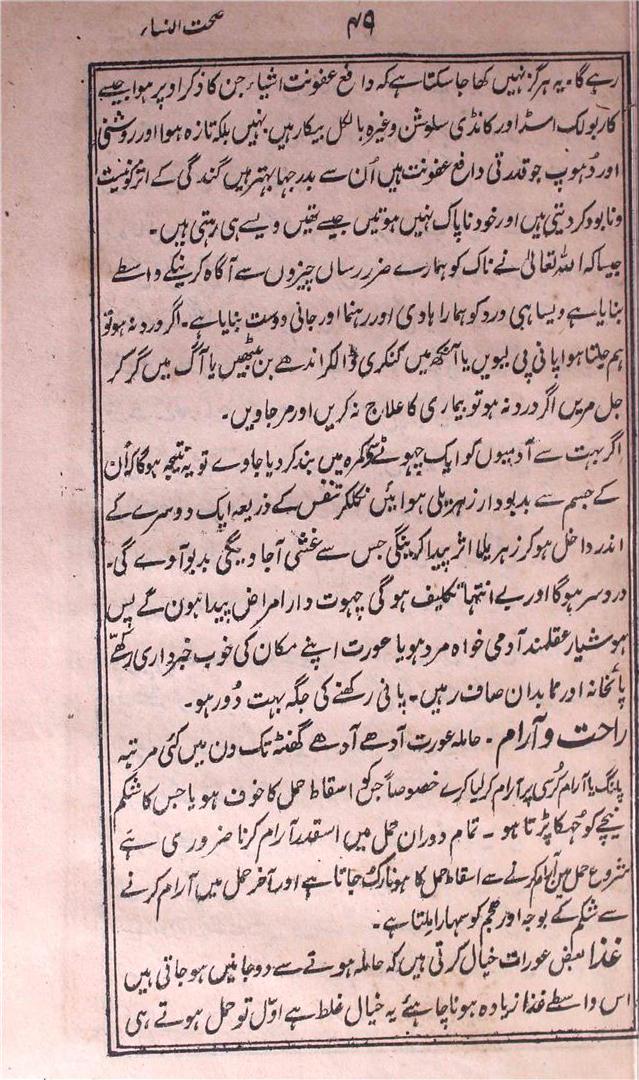 صحت النساء
۴۹
رہے گا۔ یہ ہرگز نہیں کھا جا سکتا ہے کہ دافع عفونت اشیاء جن کا ذکر اوپر ہوا جیسے
کاربولک اسڈ اور کانڈی سلوشن وغیرہ بالکل بیکار ہیں نہیں بلکہ تازہ ہوا اور روشنی
اور دُہوپ جو قدرتی دافع عفونت ہیں اُن سے بدرجہا بہتر ہیں گندگی کے اثر کو نیست
و نابود کر دیتی ہیں اور خود ناپاک نہیں ہوتیں جیسے تھیں ویسے ہی رہتی ہیں۔
جیسا کہ اللہ تعالیٰ نے ناک کو ہمارے ضرر رساں چیزوں سے آگاہ کرنیکے واسطے
بنایا ہے ویسا ہی درد کو ہمارا ہادی اور رہنما اور جانی دوست بنایا ہے۔ اگر درد نہ ہو تو
ہم جلتا ہوا پانی پی لیویں یا آنکھ میں کنکری ڈالکر اندھے بن بیٹھیں یا آگ میں گر کر
جل مریں اگر درد نہ ہو تو بیماری کا علاج نہ کریں اور مر جاویں۔
اگر بہت سے آدمیوں کو ایک چہوٹے کمرہ میں بند کر دیا جاوے تو یہ نتیجہ ہوگا کہ اُن
کے جسم سے بدبودار زہریلی ہوائیں نکلکر تنفس کے ذریعہ ایک دوسرے کے
اندر داخل ہو کر زہریلا اثر پیدا کرینگی جس سے غشی آجاویگی بدبو آوے گی۔
درد سر ہوگا اور بے انتہا تکلیف ہو گی چہوت دار امراض پیدا ہون گے پس
ہوشیار عقلمند آدمی خواہ مرد ہو یا عورت اپنے مکان کی خوب خبرداری رکھے
پائخانہ اور نابدان صاف رہیں۔ پانی رکھنے کی جگہ بہت دُور ہو۔
راحت و آرام۔ حاملہ عورت آدھے آدھے گھنٹہ تک دن میں کئی مرتبہ
پلنگ یا آرام کُرسی پر آرام کر لیا کرے خصوصاً جسکو اسقاط حمل کا خوف ہو یا جس کا شکم
نیچے کو جُھکا پڑتا ہو۔ تمام دوران حمل میں اسقدر آرام کرنا ضروری ہے
شروع حمل مین آرام کرنے سے اسقاط حمل کا ہونا رُک جاتا ہے اور آخر حمل میں آرام کرنے
سے شکم کے بوجھ اور حجم کو سہارا ملتا ہے۔
غذا بعض عورات خیال کرتی ہیں کہ حاملہ ہونے سے دو جانیں ہو جاتی ہیں
اس واسطے غذا زیادہ ہونا چاہئے یہ خیال غلط ہے اوّل تو حمل ہوتے ہی